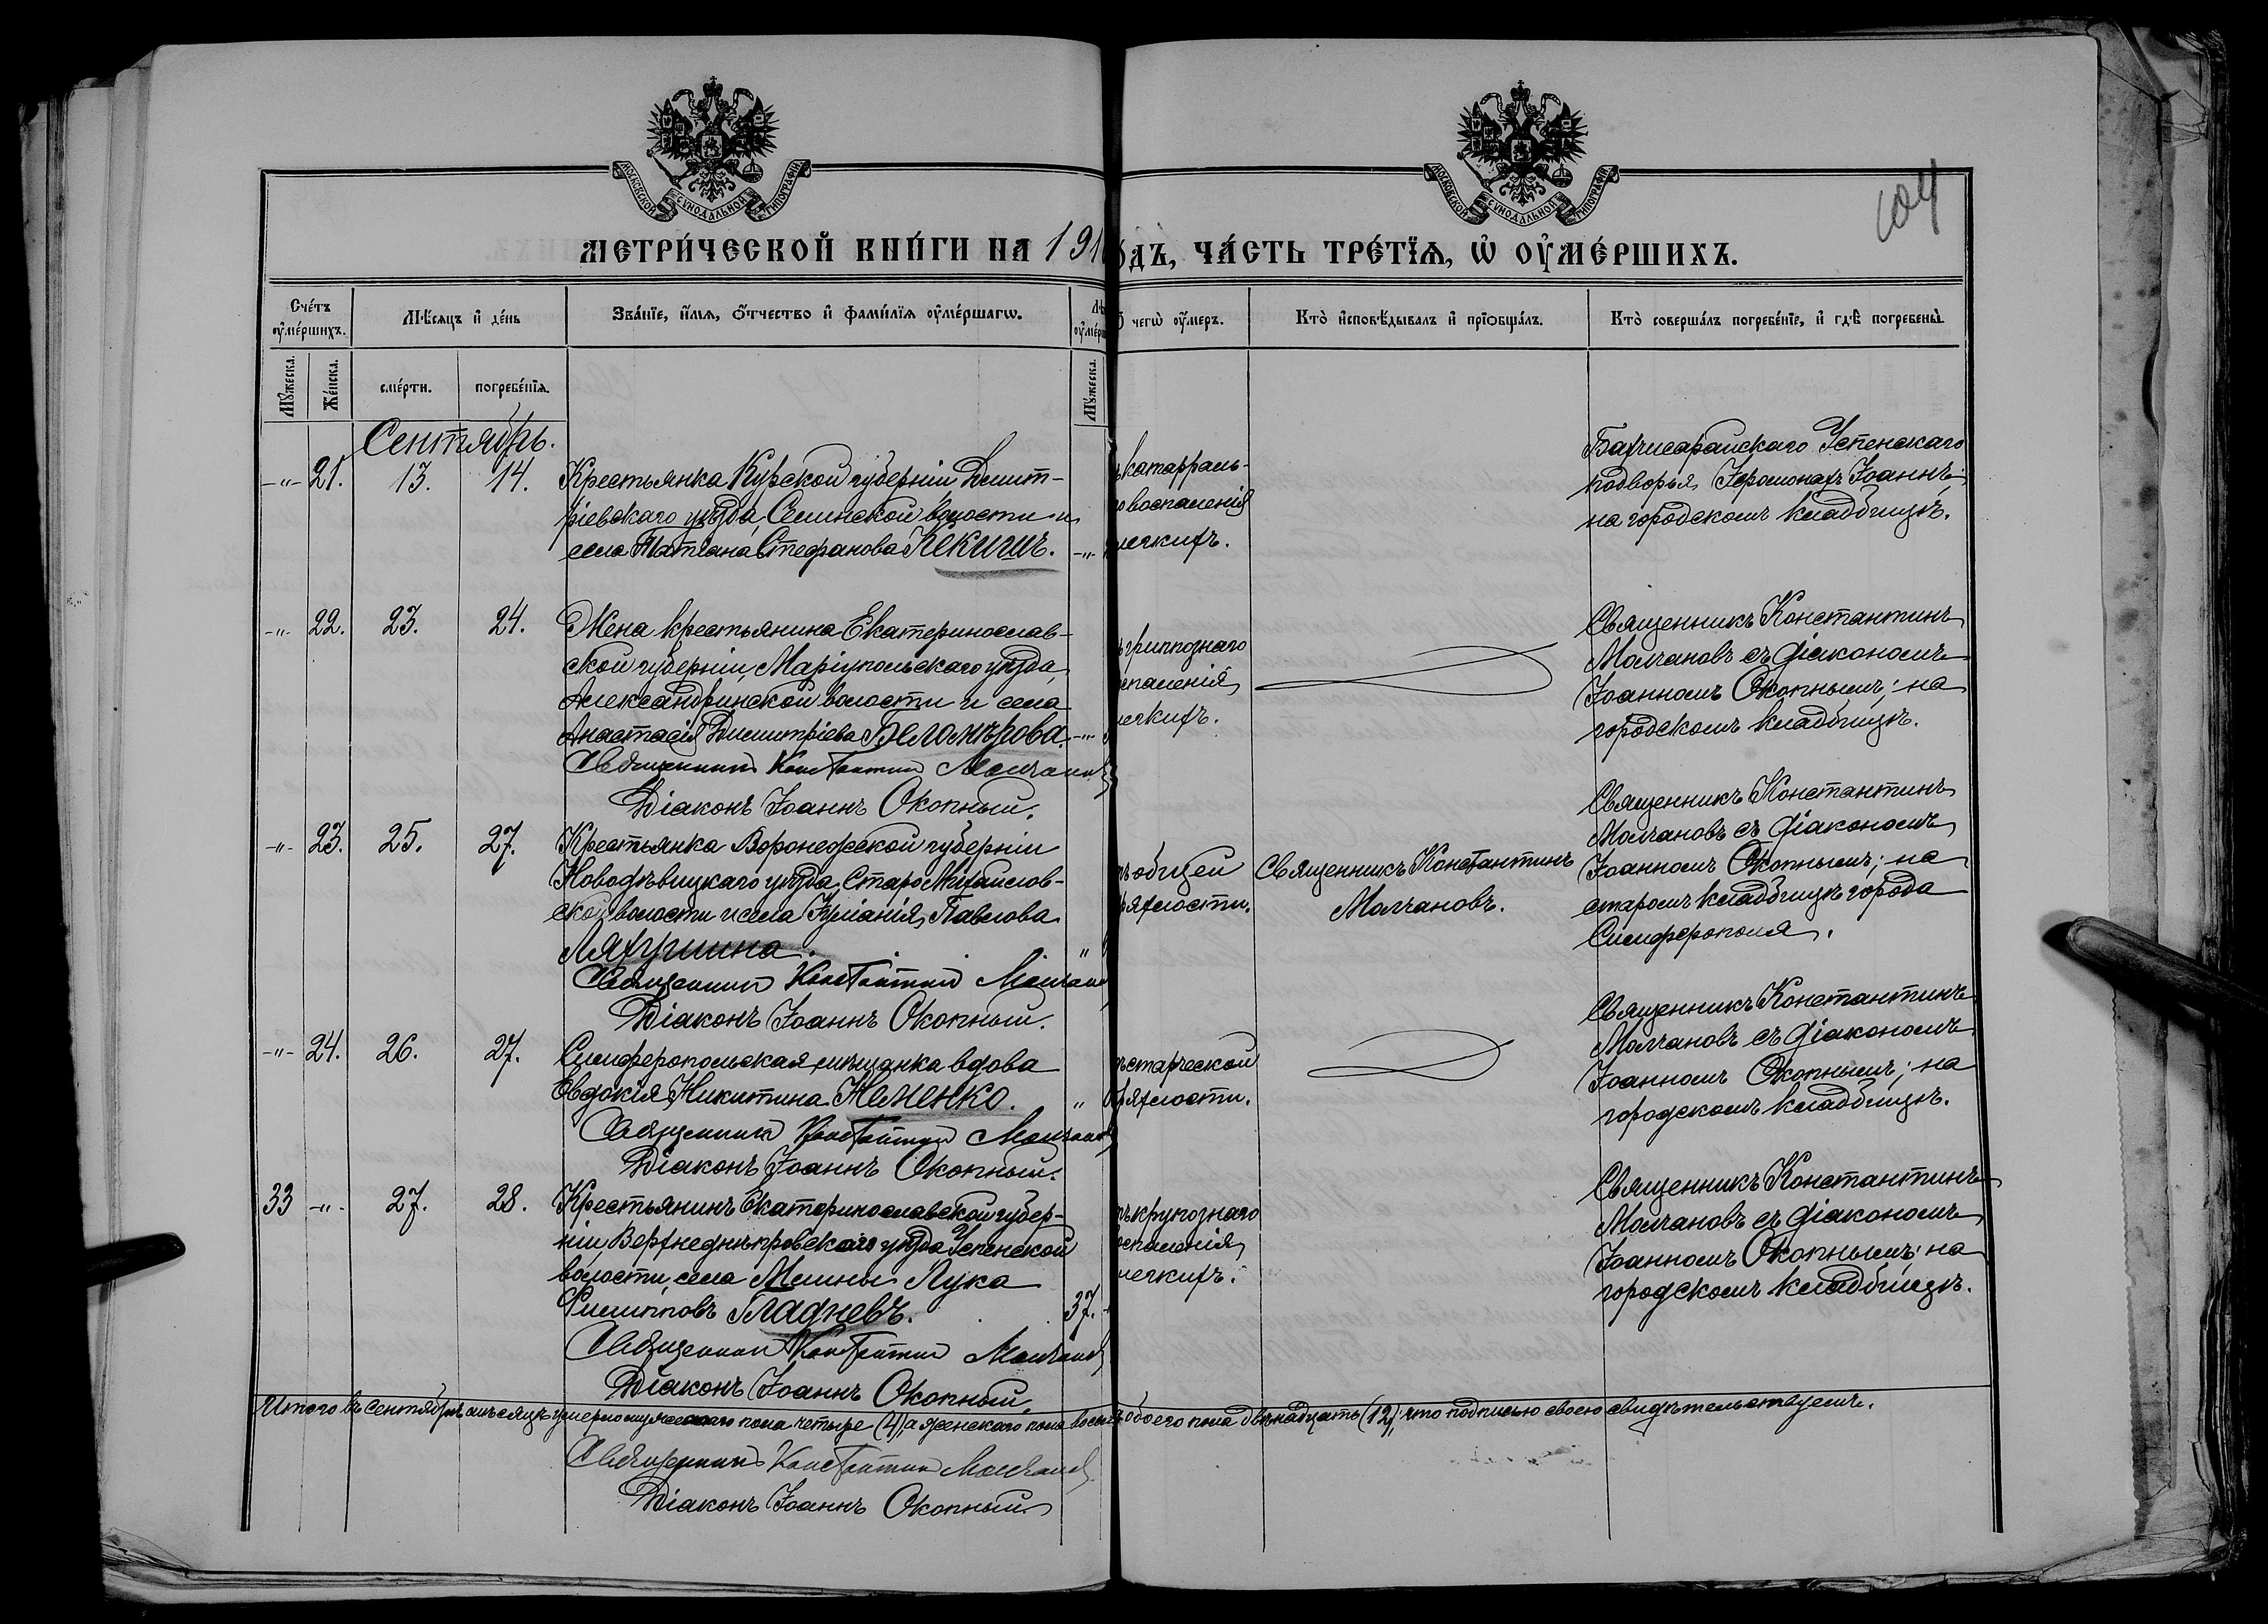 МОСКОВСКОЙ СѴНОДАЛЬНОЙ ТИПОГРАФІИ
МОСКОВСКОЙ СѴНОДАЛЬНОЙ ТИПОГРАФІИ
МЕТРИ́ЧЕСКОЙ КНИ́ГИ НА 191
ДЪ, ЧА́СТЬ ТРЕ́ТІѦ, Ѡ ОУ҆МЕ́РШИХЪ.
Сче́тъ оу҆ме́ршихъ.
Мѣ́сяцъ и҆ де́нь
Зва́нїе, и҆́мѧ, ѻ҆́тчество и҆ фами́лїѧ оу҆ме́ршагѡ.
чегѡ̀ оу҆́меръ.
Кто̀ и҆сповѣ́дывалъ и҆ прїѡбща́лъ.
Кто̀ соверша́лъ погребе́нїе, и҆ гдѣ̀ погребены̀.
Мꙋ́жеска.
Же́нска.
сме́рти.
погребе́нїѧ.
Мꙋ́жеска.
Сентябрь.
-"- 21. 13. 14. Крестьянка Курской губерніи Дмит-
ріевскаго уѣзда, Селинской волости и
села Татіана Стефанова Кекишъ. -"-
катарраль-
воспаленія
легкихъ.
Бахчисарайскаго Успенскаго
подворья Іеромонахъ Іоаннъ;
на городскомъ кладбищѣ.
-"- 22. 23. 24. Жена крестьянина Екатеринослав-
ской губерніи, Маріупольскаго уѣзда,
Александринской волости и села
Анастасія Димитріева Беломѣрова. -"-
Священникъ Константинъ Молчановъ
Діаконъ Іоаннъ Окопный.
гриппознаго
спаленія
легкихъ.
Священникъ Константинъ
Молчановъ съ діакономъ
Іоанномъ Окопнымъ; на
городскомъ кладбищѣ.
-"- 23. 25. 27. Крестьянка Воронежской губерніи
Новодѣвицкаго уѣзда, Старо Михайлов-
ской волости и села Іуліанія Павлова
Ляхушина. "
Священникъ Константинъ Молчановъ
Діаконъ Іоаннъ Окопный.
общей
дряхлости.
Священникъ Константинъ
Молчановъ.
Священникъ Константинъ
Молчановъ съ діакономъ
Іоанномъ Окопнымъ; на
старомъ кладбищѣ города
Симферополя.
-"- 24. 26. 27. Симферопольская мѣщанка вдова
Евдокія Никитина Нененко. "
Священникъ Константинъ Молчановъ
Діаконъ Іоаннъ Окопный.
старческой
дряхлости.
Священникъ Константинъ
Молчановъ съ діакономъ
Іоанномъ Окопнымъ; на
городскомъ кладбищѣ.
33 -"- 27. 28. Крестьянинъ Екатеринославской губер-
ніи, Верхнеднѣпровскаго уѣзда Успенской
волости, села Млины Лука
Филипповъ Гладневъ. 37.
Священникъ Константинъ Молчановъ
Діаконъ Іоаннъ Окопный.
крупознаго
спаленія
легкихъ.
Священникъ Константинъ
Молчановъ съ діакономъ
Іоанномъ Окопнымъ; на
городскомъ кладбищѣ.
Итого въ сентябрѣ мѣсяцѣ умерло мужескаго пола четыре (4), а женскаго пола обоего пола двѣнадцать (12); что подписью своею свидѣтельствуемъ.
Священникъ Константинъ Молчановъ
Діаконъ Іоаннъ Окопный.